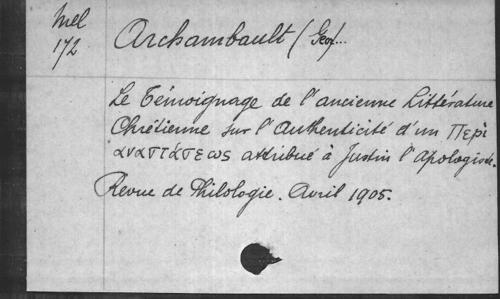 Mel
172
Archambault (Geof...
Le Témoignage de l'ancienne Littérature
Chrétienne sur l'Authenticité d'un Περὶ
αναστάσεως attribué à Justin l'Apologiste.
Revue de Philologie. Avril 1905.